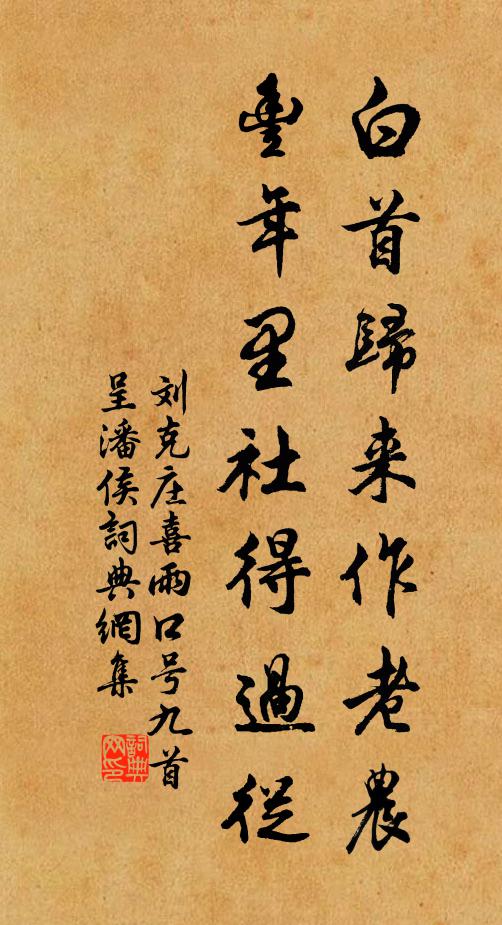 白首歸来作老農
豊年里社得過從
刘克庄喜雨口号九首
呈潘侯詞典網集
詞典网印